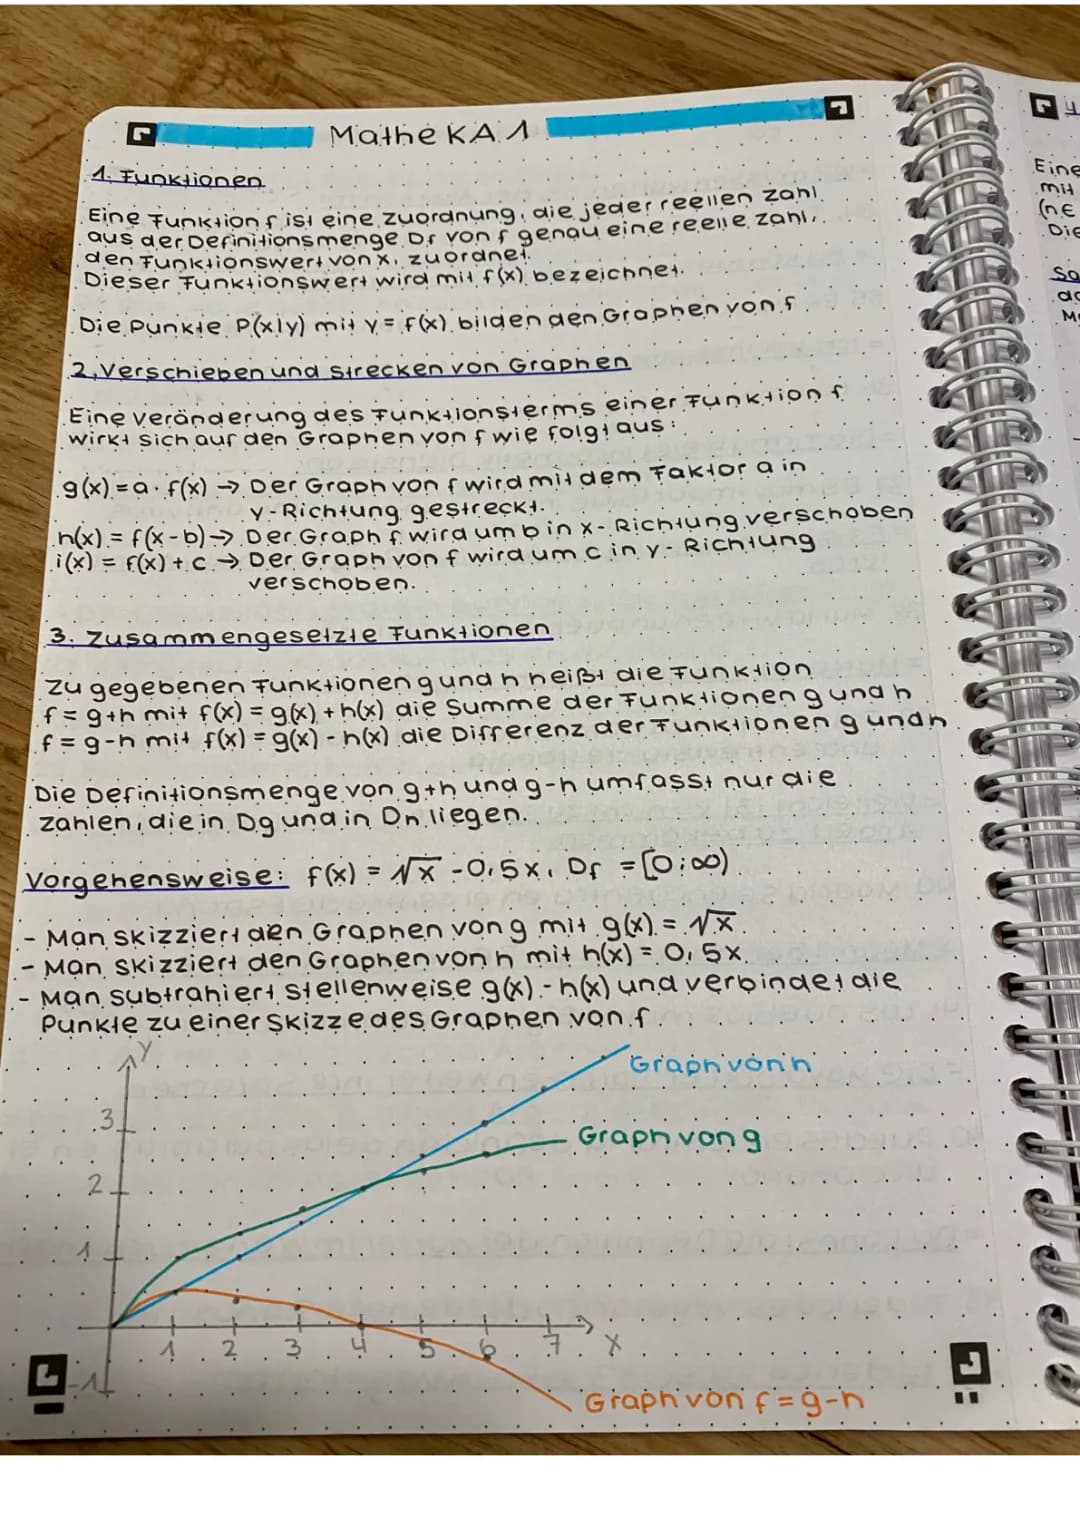 Mathe KA 1
1. Funktionen
Eine Funktion f ist eine Zuordnung, die jeder reellen Zahl
aus der Definitionsmenge Df von f genau eine reelle Zahl,
den Funktionswert von x, zuordnet.
Dieser Funktionswert wird mit f(x) bezeichnet.
Die Punkte P(x|y) mit y = f(x) bilden den Graphen von f.
2. Verschieben und strecken von Graphen
Eine Veränderung des Funktionsterms einer Funktion f
wirkt sich auf den Graphen von f wie folgt aus:
g(x) = a · f(x) → Der Graph von f wird mit dem Faktor a in
y-Richtung gestreckt.
h(x) = f(x-b) → Der Graph f wird um b in x-Richtung verschoben
i(x) = f(x) + c → Der Graph von f wird um c in y-Richtung
verschoben.
3. Zusammengesetzte Funktionen
Zu gegebenen Funktionen g und h heißt die Funktion
f = g+h mit f(x) = g(x) + h(x) die Summe der Funktionen g und h
f = g-h mit f(x) = g(x) - h(x) die Differenz der Funktionen g und h.
Die Definitionsmenge von g+h und g-h umfasst nur die
Zahlen, die in Dg und in Dh liegen.
Vorgehensweise: f(x) = √x - 0,5x, Df = [0;∞)
- Man skizziert den Graphen von g mit g(x) = √x.
- Man skizziert den Graphen von h mit h(x) = 0,5x.
- Man subtrahiert stellenweise g(x) - h(x) und verbindet die
Punkte zu einer Skizze des Graphen von f.
y
Graph von h
3
Graph von g
2
1
1 2 3 4 5 6 7 x
-1
Graph von f = g-h
Eine
mit
(n∈
Die